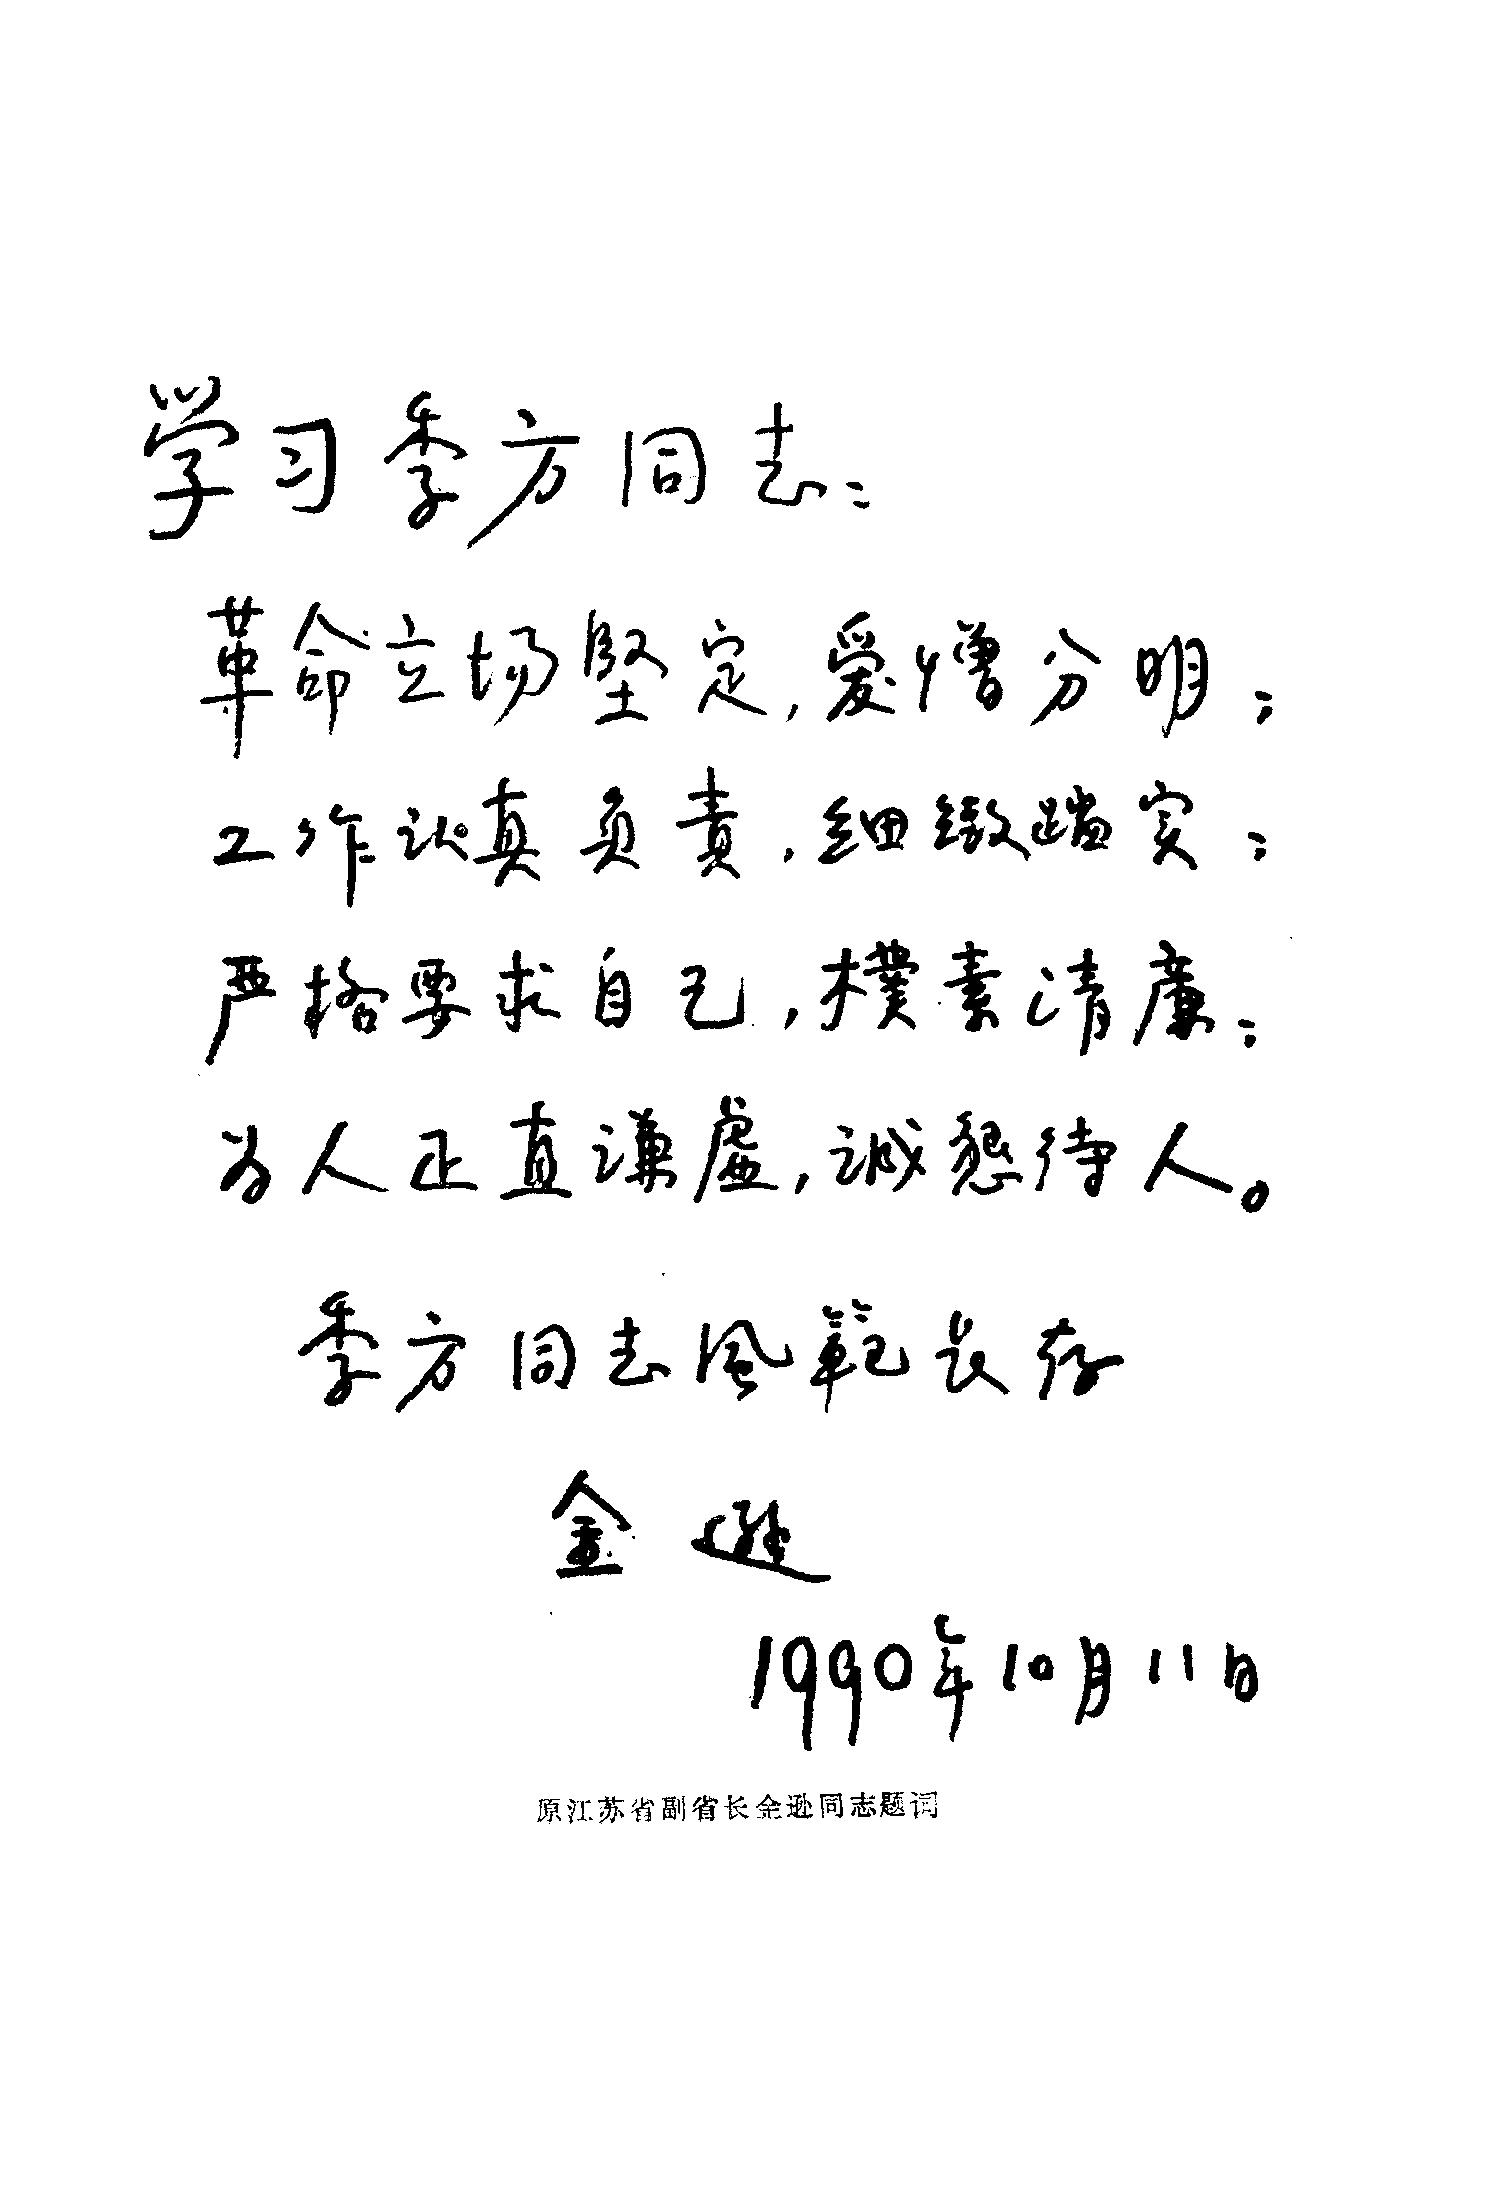 学习季方同志：
革命立场堅定，爱憎分明；
工作认真负責，細緻踏实；
严格要求自己，樸素清廉；
为人正直谦虚，诚懇待人。
季方同志风範长存
金逊
1990年10月11日
原江苏省副省长金逊同志题词